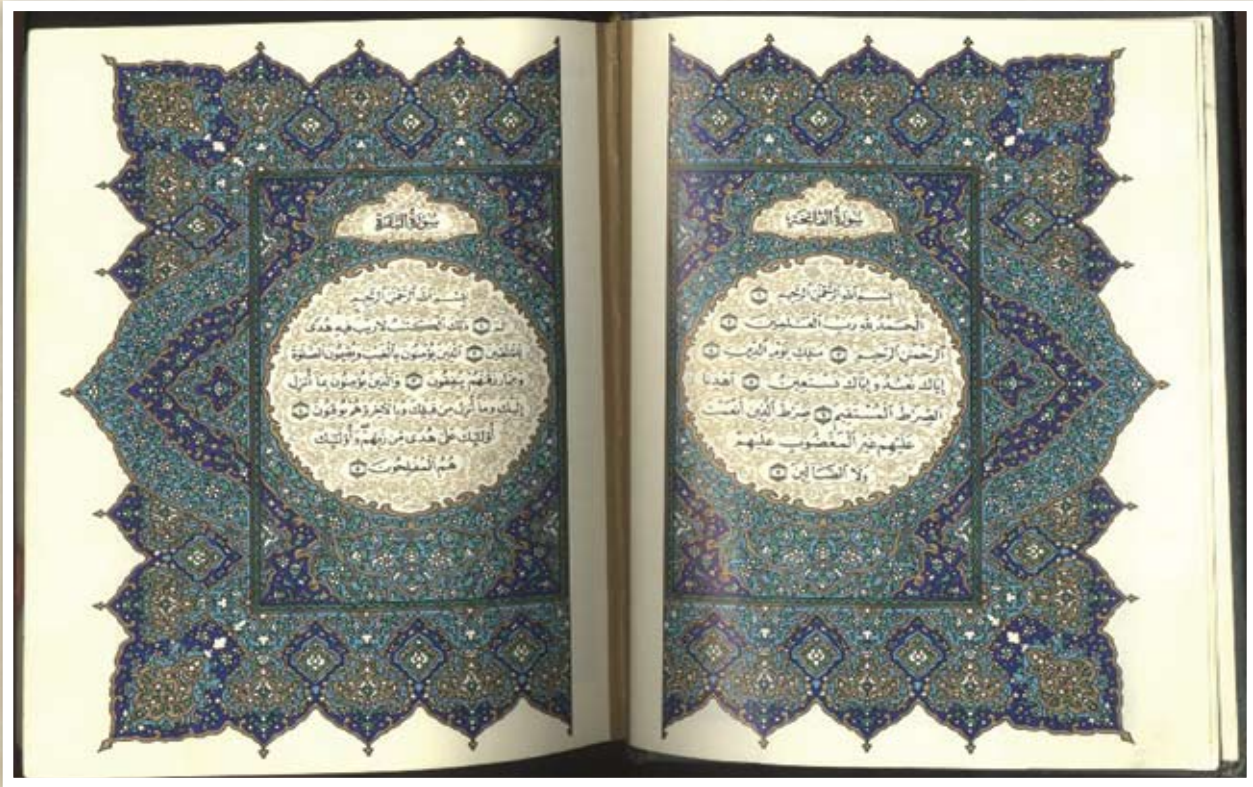 سُورَةُ الفَاتِحَةِ
بِسْمِ ٱللَّهِ ٱلرَّحْمَٰنِ ٱلرَّحِيمِ
ٱلْحَمْدُ لِلَّهِ رَبِّ ٱلْعَٰلَمِينَ
ٱلرَّحْمَٰنِ ٱلرَّحِيمِ مَٰلِكِ يَوْمِ ٱلدِّينِ
إِيَّاكَ نَعْبُدُ وَإِيَّاكَ نَسْتَعِينُ ٱهْدِنَا
ٱلصِّرَٰطَ ٱلْمُسْتَقِيمَ صِرَٰطَ ٱلَّذِينَ أَنْعَمْتَ
عَلَيْهِمْ غَيْرِ ٱلْمَغْضُوبِ عَلَيْهِمْ
وَلَا ٱلضَّآلِّينَ
سُورَةُ البَقَرَةِ
بِسْمِ ٱللَّهِ ٱلرَّحْمَٰنِ ٱلرَّحِيمِ
الٓمٓ ذَٰلِكَ ٱلْكِتَٰبُ لَا رَيْبَ فِيهِ هُدًى
لِّلْمُتَّقِينَ ٱلَّذِينَ يُؤْمِنُونَ بِٱلْغَيْبِ وَيُقِيمُونَ ٱلصَّلَوٰةَ
وَمِمَّا رَزَقْنَٰهُمْ يُنفِقُونَ وَٱلَّذِينَ يُؤْمِنُونَ بِمَآ أُنزِلَ
إِلَيْكَ وَمَآ أُنزِلَ مِن قَبْلِكَ وَبِٱلْءَاخِرَةِ هُمْ يُوقِنُونَ
أُو۟لَٰٓئِكَ عَلَىٰ هُدًى مِّن رَّبِّهِمْ وَأُو۟لَٰٓئِكَ
هُمُ ٱلْمُفْلِحُونَ